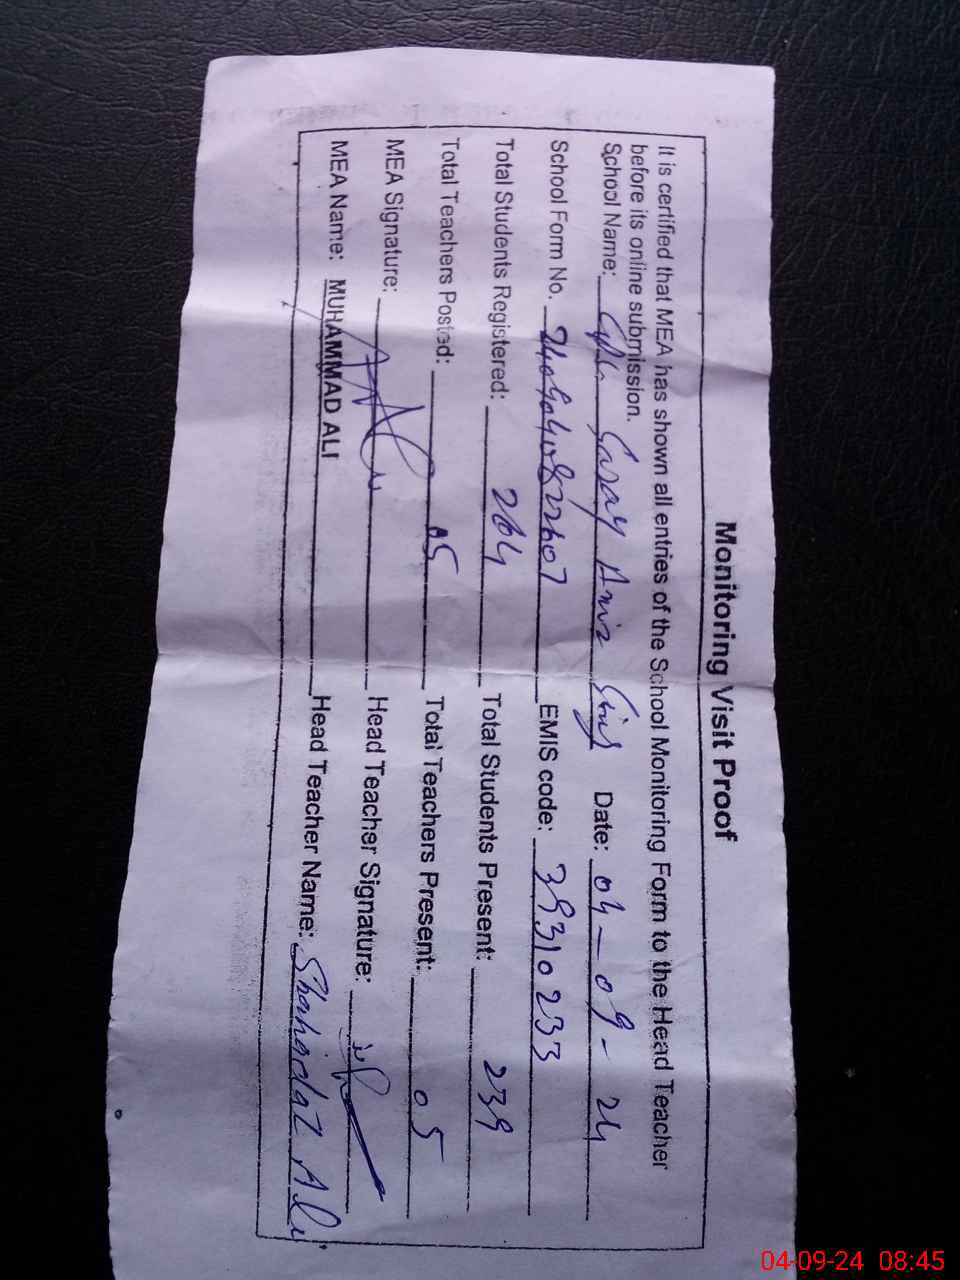 Monitoring Visit Proof
It is certified that MEA has shown all entries of the School Monitoring Form to the Head Teacher
before its online submission.
School Name: Saray Amir Date: 04-09-24
School Form No. EMIS code: 39310233
Total Students Registered: 264 Total Students Present: 239
Total Teachers Posted: 05 Total Teachers Present: 05
MEA Signature: Head Teacher Signature:
MEA Name: MUHAMMAD ALI Head Teacher Name: Shahadat Ali
04-09-24 08:45